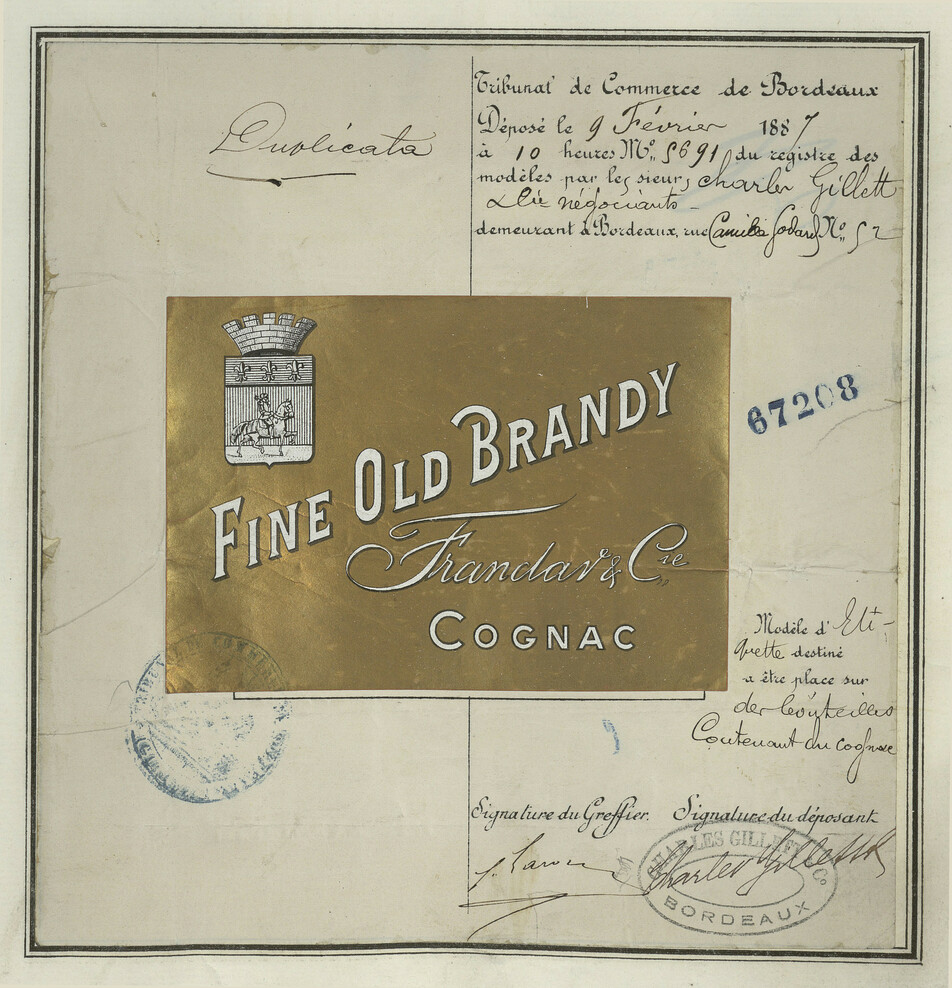 Duplicata
Tribunal de Commerce de Bordeaux
Déposé le 9 Février 1887
à 10 heures No. 5691 du registre des
modèles par les sieurs Charles Gillett
& Cie négociants -
demeurant à Bordeaux, rue Camille Godard No. 52
FINE OLD BRANDY
Frandav & Cie
COGNAC
67208
Modèle d'Eti-
quette destiné
a être place sur
des bouteilles
Contenant du cognac
TRIBUNAL DE COMMERCE
Signature du Greffier. Signature du déposant
CHARLES GILLETT & Co
Charles Gillett &
BORDEAUX